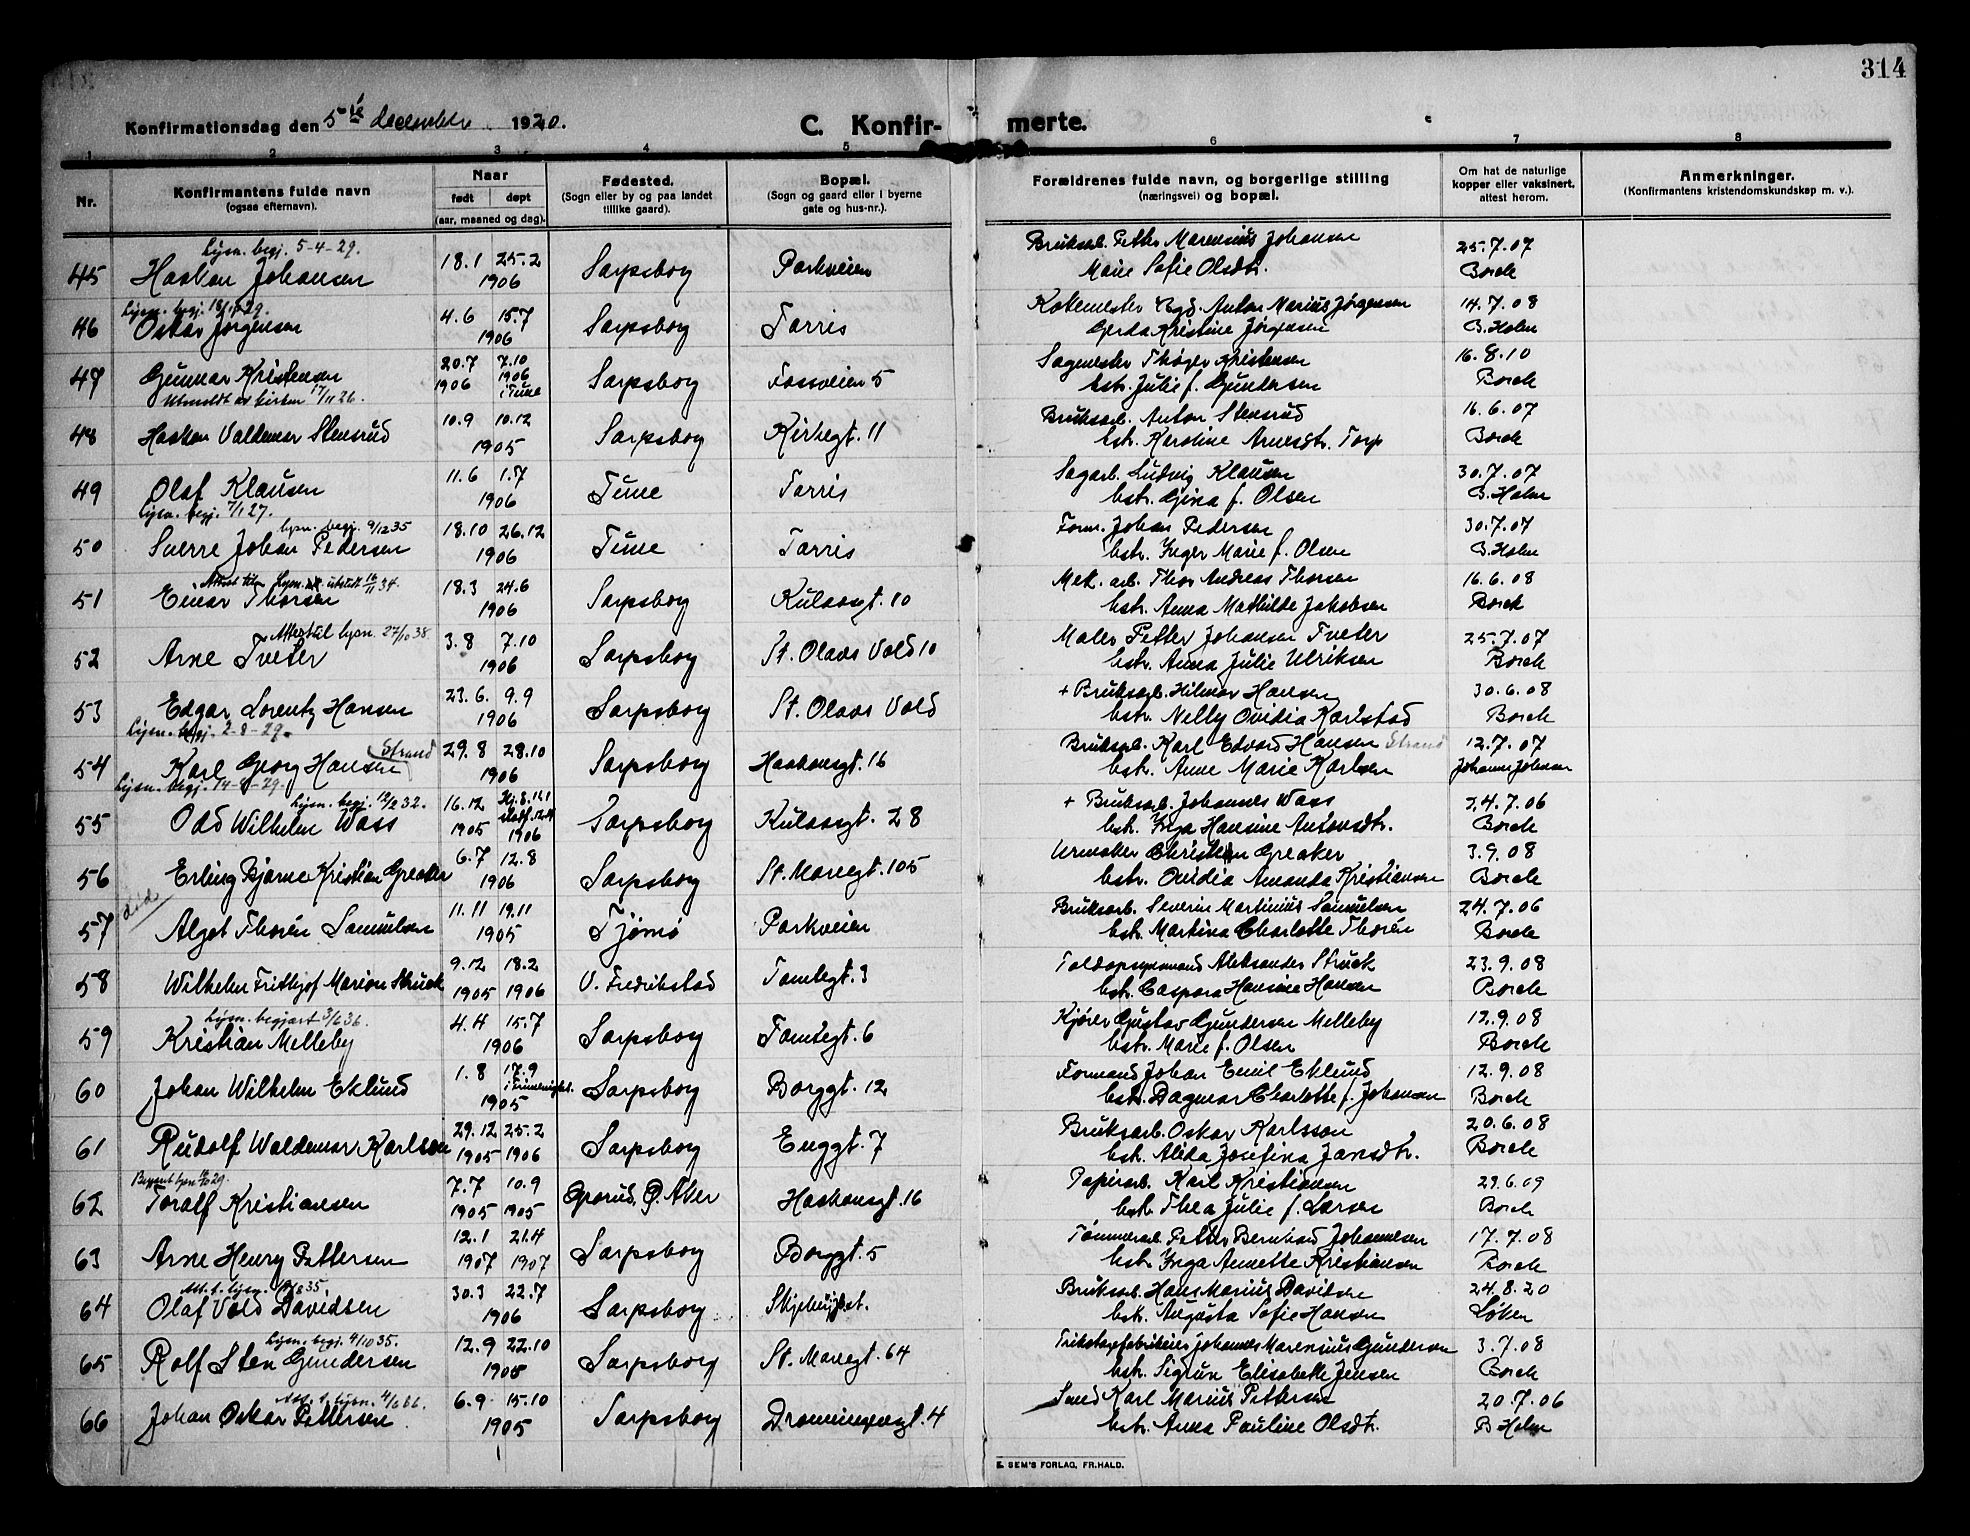 314
Konfirmationsdag den 5te december 1920.
C. Konfir- merte.
1 2 3 4 5 6 7 8
Nr.
Konfirmantens fulde navn
(ogsaa efternavn).
Naar
født døpt
(aar, maaned og dag).
Fødested.
(Sogn eller by og paa landet
tillike gaard).
Bopæl.
(Sogn og gaard eller i byerne
gate og hus-nr.).
Forældrenes fulde navn, og borgerlige stilling
(næringsvei) og bopæl.
Om hat de naturlige
kopper eller vaksinert,
attest herom.
Anmerkninger.
(Konfirmantens kristendomskundskap m. v.).
Lysn. begj. 5-4-29.
45 Haakon Johansen 18.1 25.2 1906 Sarpsborg Parkveien Bruksarb. Petter Marensius Johansen 25.7.07
Marie Sofie Olsdtr. Borch
46 Oskar Jørgensen 4.6 15.7 1906 Sarpsborg Tarris Anton Marius Jørgensen 14.7.08
Gerda Kristine Jørgensen B. Holm
47 Gunnar Kristensen 20.7 1906 7.10 1906 i Tune Sarpsborg Fossveien 5 Sagmester Thøger Kristensen 16.8.10
Utmeldt av kirken 17/11 26. hstr. Julie f. Gundersen Borch
48 Haakon Valdemar Stensrud 10.9 10.12 1905 Sarpsborg Kirkegt. 11 Bruksarb. Anton Stensrud 16.6.07
hstr. Karoline Arnesdtr. Torp Borch
49 Olaf Klausen 11.6 1.7 1906 Tune Tarris Sagarb. Ludvig Klausen 30.7.07
Lysn. begj. 7/1 27. hstr. Gina f. Olsen B. Holm
lysn. begj. 9/12 35
50 Sverre Johan Pedersen 18.10 26.12 1906 Tune Tarris Form. Johan Pedersen 30.7.07
hstr. Inger Marie f. Olsen B. Holm
Attest til Lysn. utstedt 16/11 34.
51 Einar Thorsen 18.3 24.6 1906 Sarpsborg Kulaasgt. 10 Mek. arb. Thor Andreas Thorsen 16.6.08
hstr. Anna Mathilde Jakobsen Borch
Attest til lysn. 27/10 38.
52 Arne Tveter 3.8 7.10 1906 Sarpsborg St. Olavs Vold 10 Maler Petter Johansen Tveter 25.7.07
hstr. Anna Julie Ulriksen Borch
53 Edgar Lorentz Hansen 23.6. 9.9 1906 Sarpsborg St. Olavs Vold + Bruksarb. Hilmar Hansen 30.6.08
Lysn. begj. 2-8-29. hstr. Nelly Ovidia Karlstad Borch
54 Karl Georg Hansen (Strand 29.8 28.10 1906 Sarpsborg Haakonsgt. 16 Bruksarb. Karl Edvard Hansen Strand 12.7.07
hstr. Anne Marie Karlsen Johanne Johnsen
Lysn. begj. 12/2 32.
55 Odd Wilhelm Wass 16.12 1905 1906 Sarpsborg Kulaasgt. 28 + Bruksarb. Johannes Wass 24.7.06
hstr. Inga Hansine Antonsdtr. Borch
56 Erling Bjarne Kristian Greaker 6.7 12.8 1906 Sarpsborg St. Mariegt. 105 Urmaker Christian Greaker 3.9.08
hstr. Ovidia Amanda Kristiansen Borch
57 Algot Thorén Samuelsen 11.11 19.11 1905 Tjømø Parkveien Bruksarb. Severin Martinius Samuelsen 24.7.06
hstr. Martina Charlotte Thorén Borch
58 Wilhelm Frithjof Marion Struck 9.12 1905 18.2 1906 V. Fredrikstad Tomtegt. 3 Toldopsynsmand Aleksander Struck 23.9.08
hstr. Caspara Hansine Hansen Borch
Lysn. begjært 3/6 36.
59 Kristian Melleby 4.4 15.7 1906 Sarpsborg Tomtegt. 6 Kjører Gustav Gundersen Melleby 12.9.08
hstr. Marie f. Olsen Borch
60 Johan Wilhelm Eklund 1.8 17.9 1905 Sarpsborg Borggt. 12 Formand Johan Emil Eklund 12.9.08
hstr. Dagmar Charlotte f. Johansen Borch
61 Rudolf Waldemar Karlsson 29.12 1905 25.2 1906 Sarpsborg Enggt. 7 Bruksarb. Oskar Karlsson 20.6.08
hstr. Alida Josefina Jansdtr. Borch
62 Toralf Kristiansen 7.7 1905 10.9 1905 Grorud, Ø. Aker Haakonsgt. 16 Papirarb. Karl Kristiansen 29.6.09
hstr. Thea Julie f. Larsen Borch
63 Arne Henry Pettersen 12.1 1907 21.4 1907 Sarpsborg Borggt. 5 Tømmerarb. Petter Bernhard Johannesen 17.7.08
hstr. Inga Annette Kristiansen Borch
64 Olaf Vold Davidsen 30.3 22.7 1906 Sarpsborg Bruksarb. Hans Marius Davidsen 24.8.20
hstr. Augusta Sofie Hansen Løken
Lysn. begj. 4/10 35.
65 Rolf Sten Gundersen 12.9 22.10 1905 Sarpsborg St. Mariegt. 64 Trikotagefabrikeier Johannes Marensius Gundersen 3.7.08
hstr. Sigrun Elisabeth Jensen Borch
66 Johan Oskar Pettersen 6.9 15.10 1905 Sarpsborg Dronningensgt. 4 Smed Karl Marius Pettersen 20.7.06
hstr. Anna Pauline Olsdtr. B Holm
E. SEM'S FORLAG, FR.HALD.